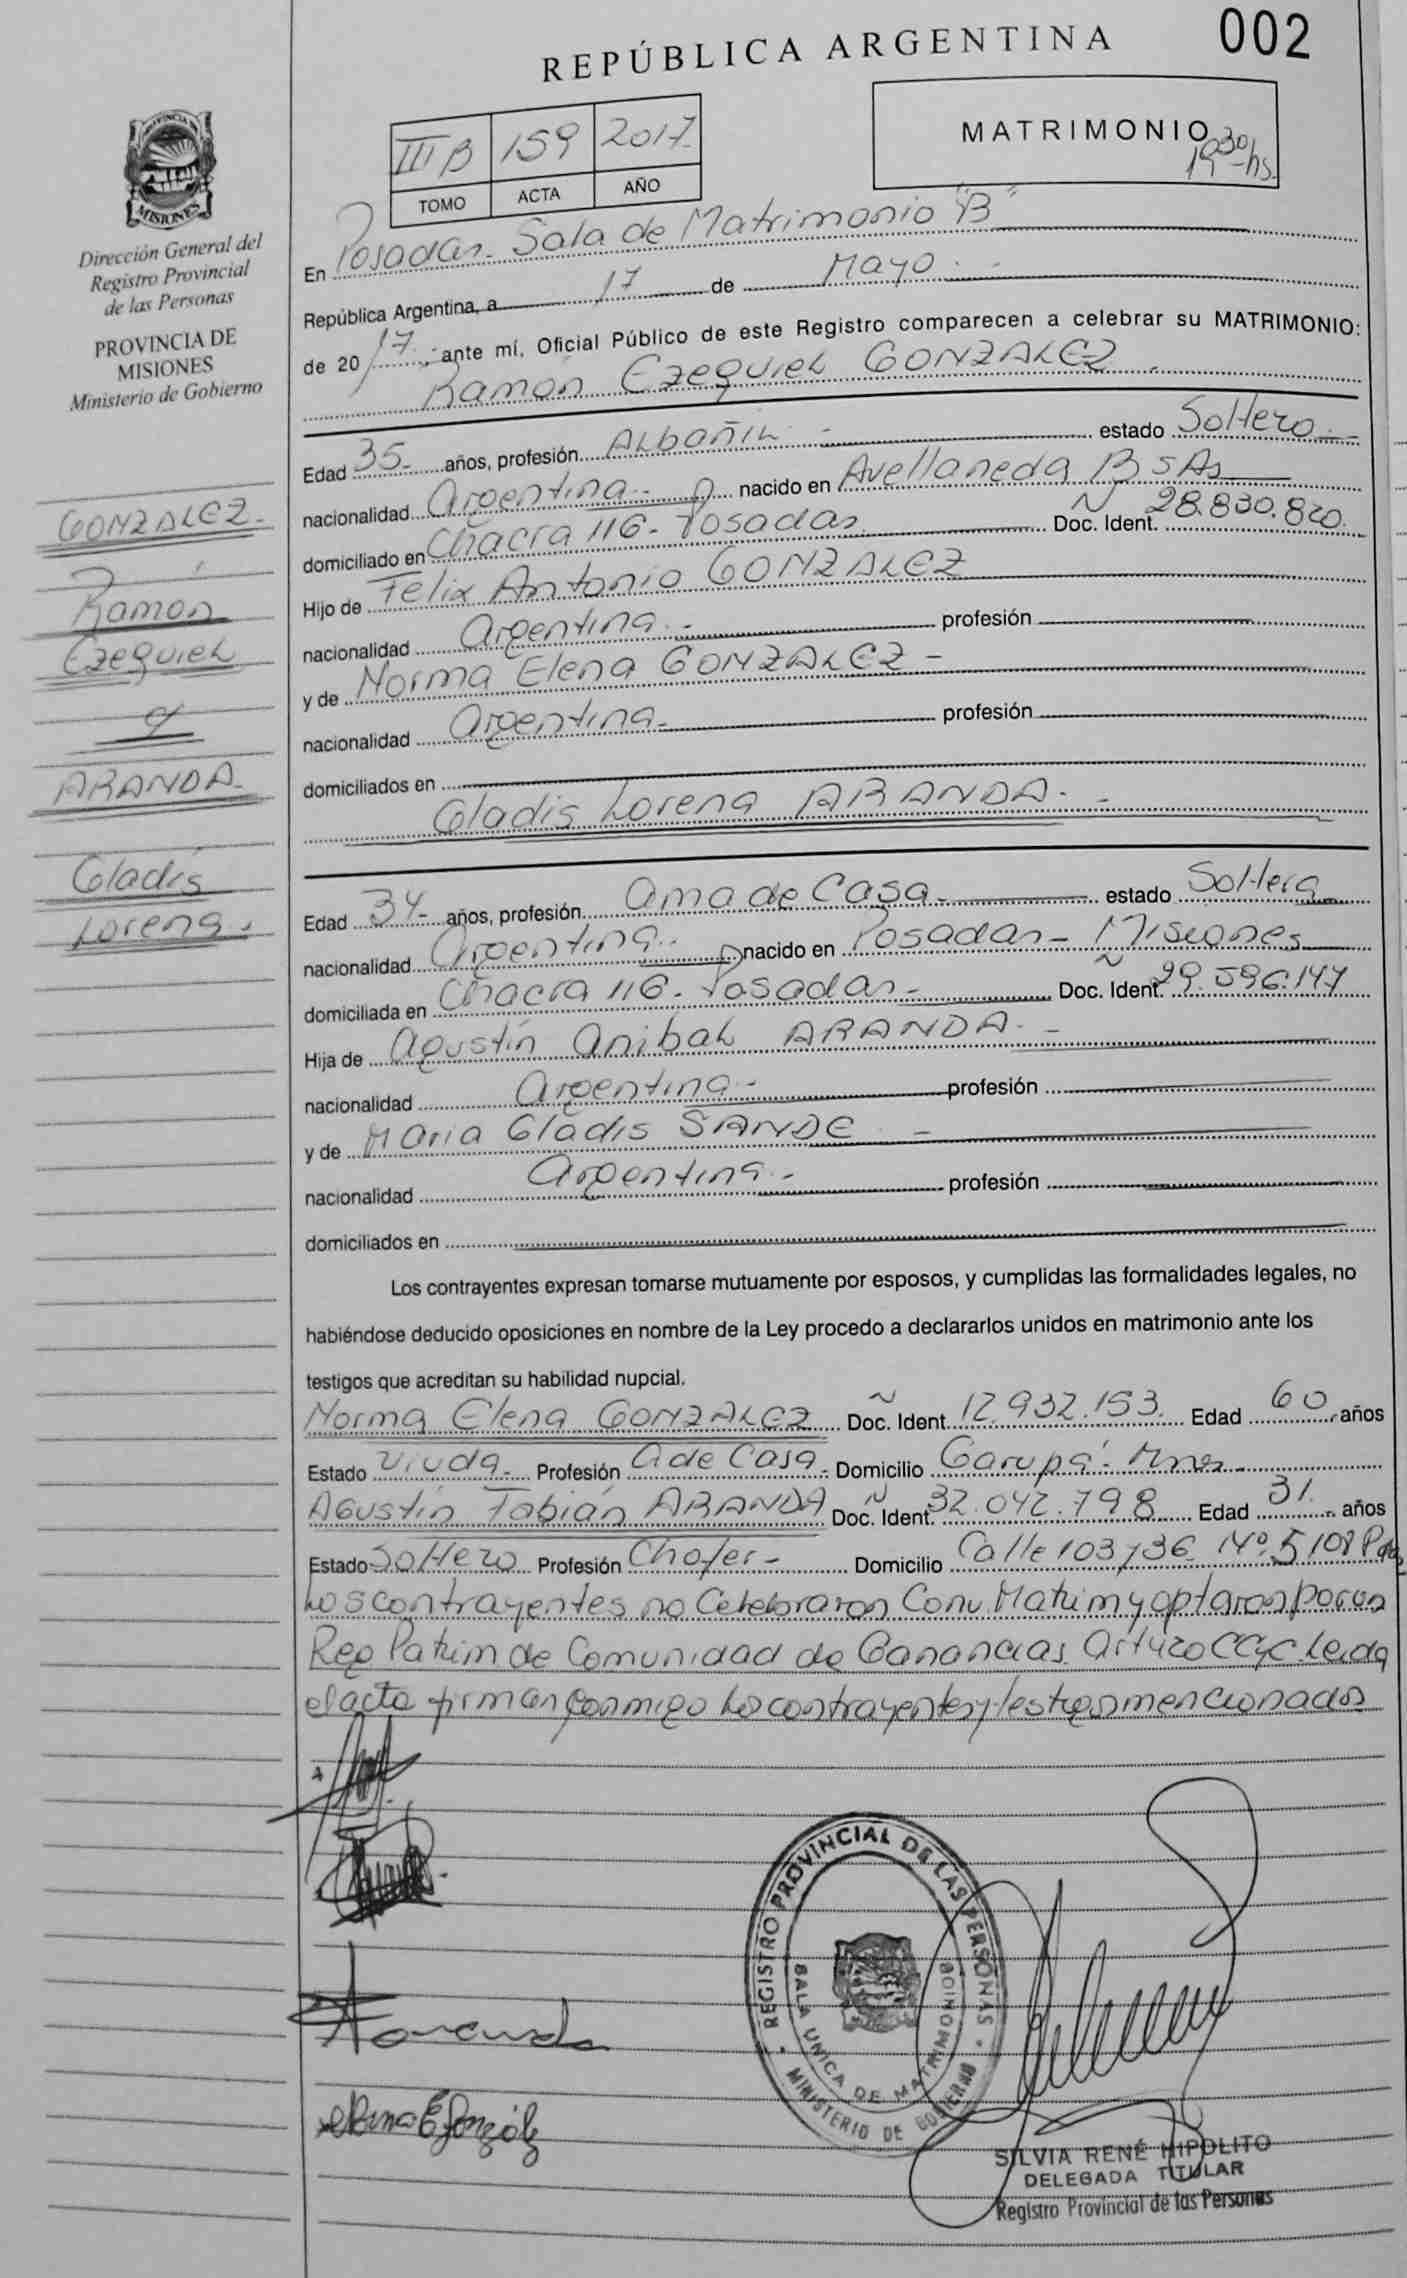 002
REPÚBLICA ARGENTINA
PROVINCIA DE
MISIONES
Dirección General del
Registro Provincial
de las Personas
PROVINCIA DE
MISIONES
Ministerio de Gobierno
III B 159 2017
TOMO ACTA AÑO
MATRIMONIO
19 30 hs.
En Posadas - Sala de Matrimonio "B"
República Argentina, a 17 de Mayo
de 20 17 , ante mí, Oficial Público de este Registro comparecen a celebrar su MATRIMONIO:
Ramón Ezequiel GONZALEZ
Edad 35 años, profesión Albañil estado Soltero
nacionalidad Argentina nacido en Avellaneda Bs As
domiciliado en Chacra 116 - Posadas Doc. Ident. 28.830.820
Hijo de Felix Antonio GONZALEZ
nacionalidad Argentina profesión
y de Norma Elena GONZALEZ
nacionalidad Argentina profesión
domiciliados en
Gladis Lorena ARANDA
GONZALEZ
Ramón
Ezequiel
y
ARANDA
Gladis
Lorena
Edad 34 años, profesión ama de Casa estado Soltera
nacionalidad Argentina nacido en Posadas - Misiones
domiciliada en Chacra 116 - Posadas Doc. Ident. 29.596.147
Hija de Agustín Anibal ARANDA
nacionalidad Argentina profesión
y de Maria Gladis SANDE
nacionalidad Argentina profesión
domiciliados en
Los contrayentes expresan tomarse mutuamente por esposos, y cumplidas las formalidades legales, no
habiéndose deducido oposiciones en nombre de la Ley procedo a declararlos unidos en matrimonio ante los
testigos que acreditan su habilidad nupcial.
Norma Elena GONZALEZ Doc. Ident. 12.932.153. Edad 60 años
Estado Viuda Profesión A de Casa Domicilio Garupá - Mnes
Agustín Fabián ARANDA Doc. Ident. 32.042.798 Edad 31 años
Estado Soltero Profesión Chofer Domicilio Calle 103 y 36 Nº 5108 Pdas
Los contrayentes no Celebraron Conv. Matrim y optaron por un
Reg Patrim de Comunidad de Ganancias Leida
el acta firman conmigo Los contrayentes y testigos mencionados
REGISTRO PROVINCIAL DE LAS PERSONAS
SALA UNICA DE MATRIMONIOS
MINISTERIO DE GOBIERNO
SILVIA RENÉ HIPOLITO
DELEGADA TITULAR
Registro Provincial de las Personas